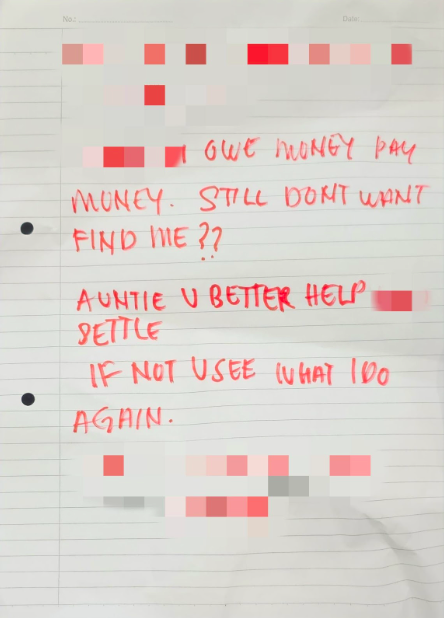 No.: Date:
OWE MONEY PAY
MONEY. STILL DONT WANT
FIND ME ??
AUNTIE U BETTER HELP
SETTLE
IF NOT U SEE WHAT I DO
AGAIN.